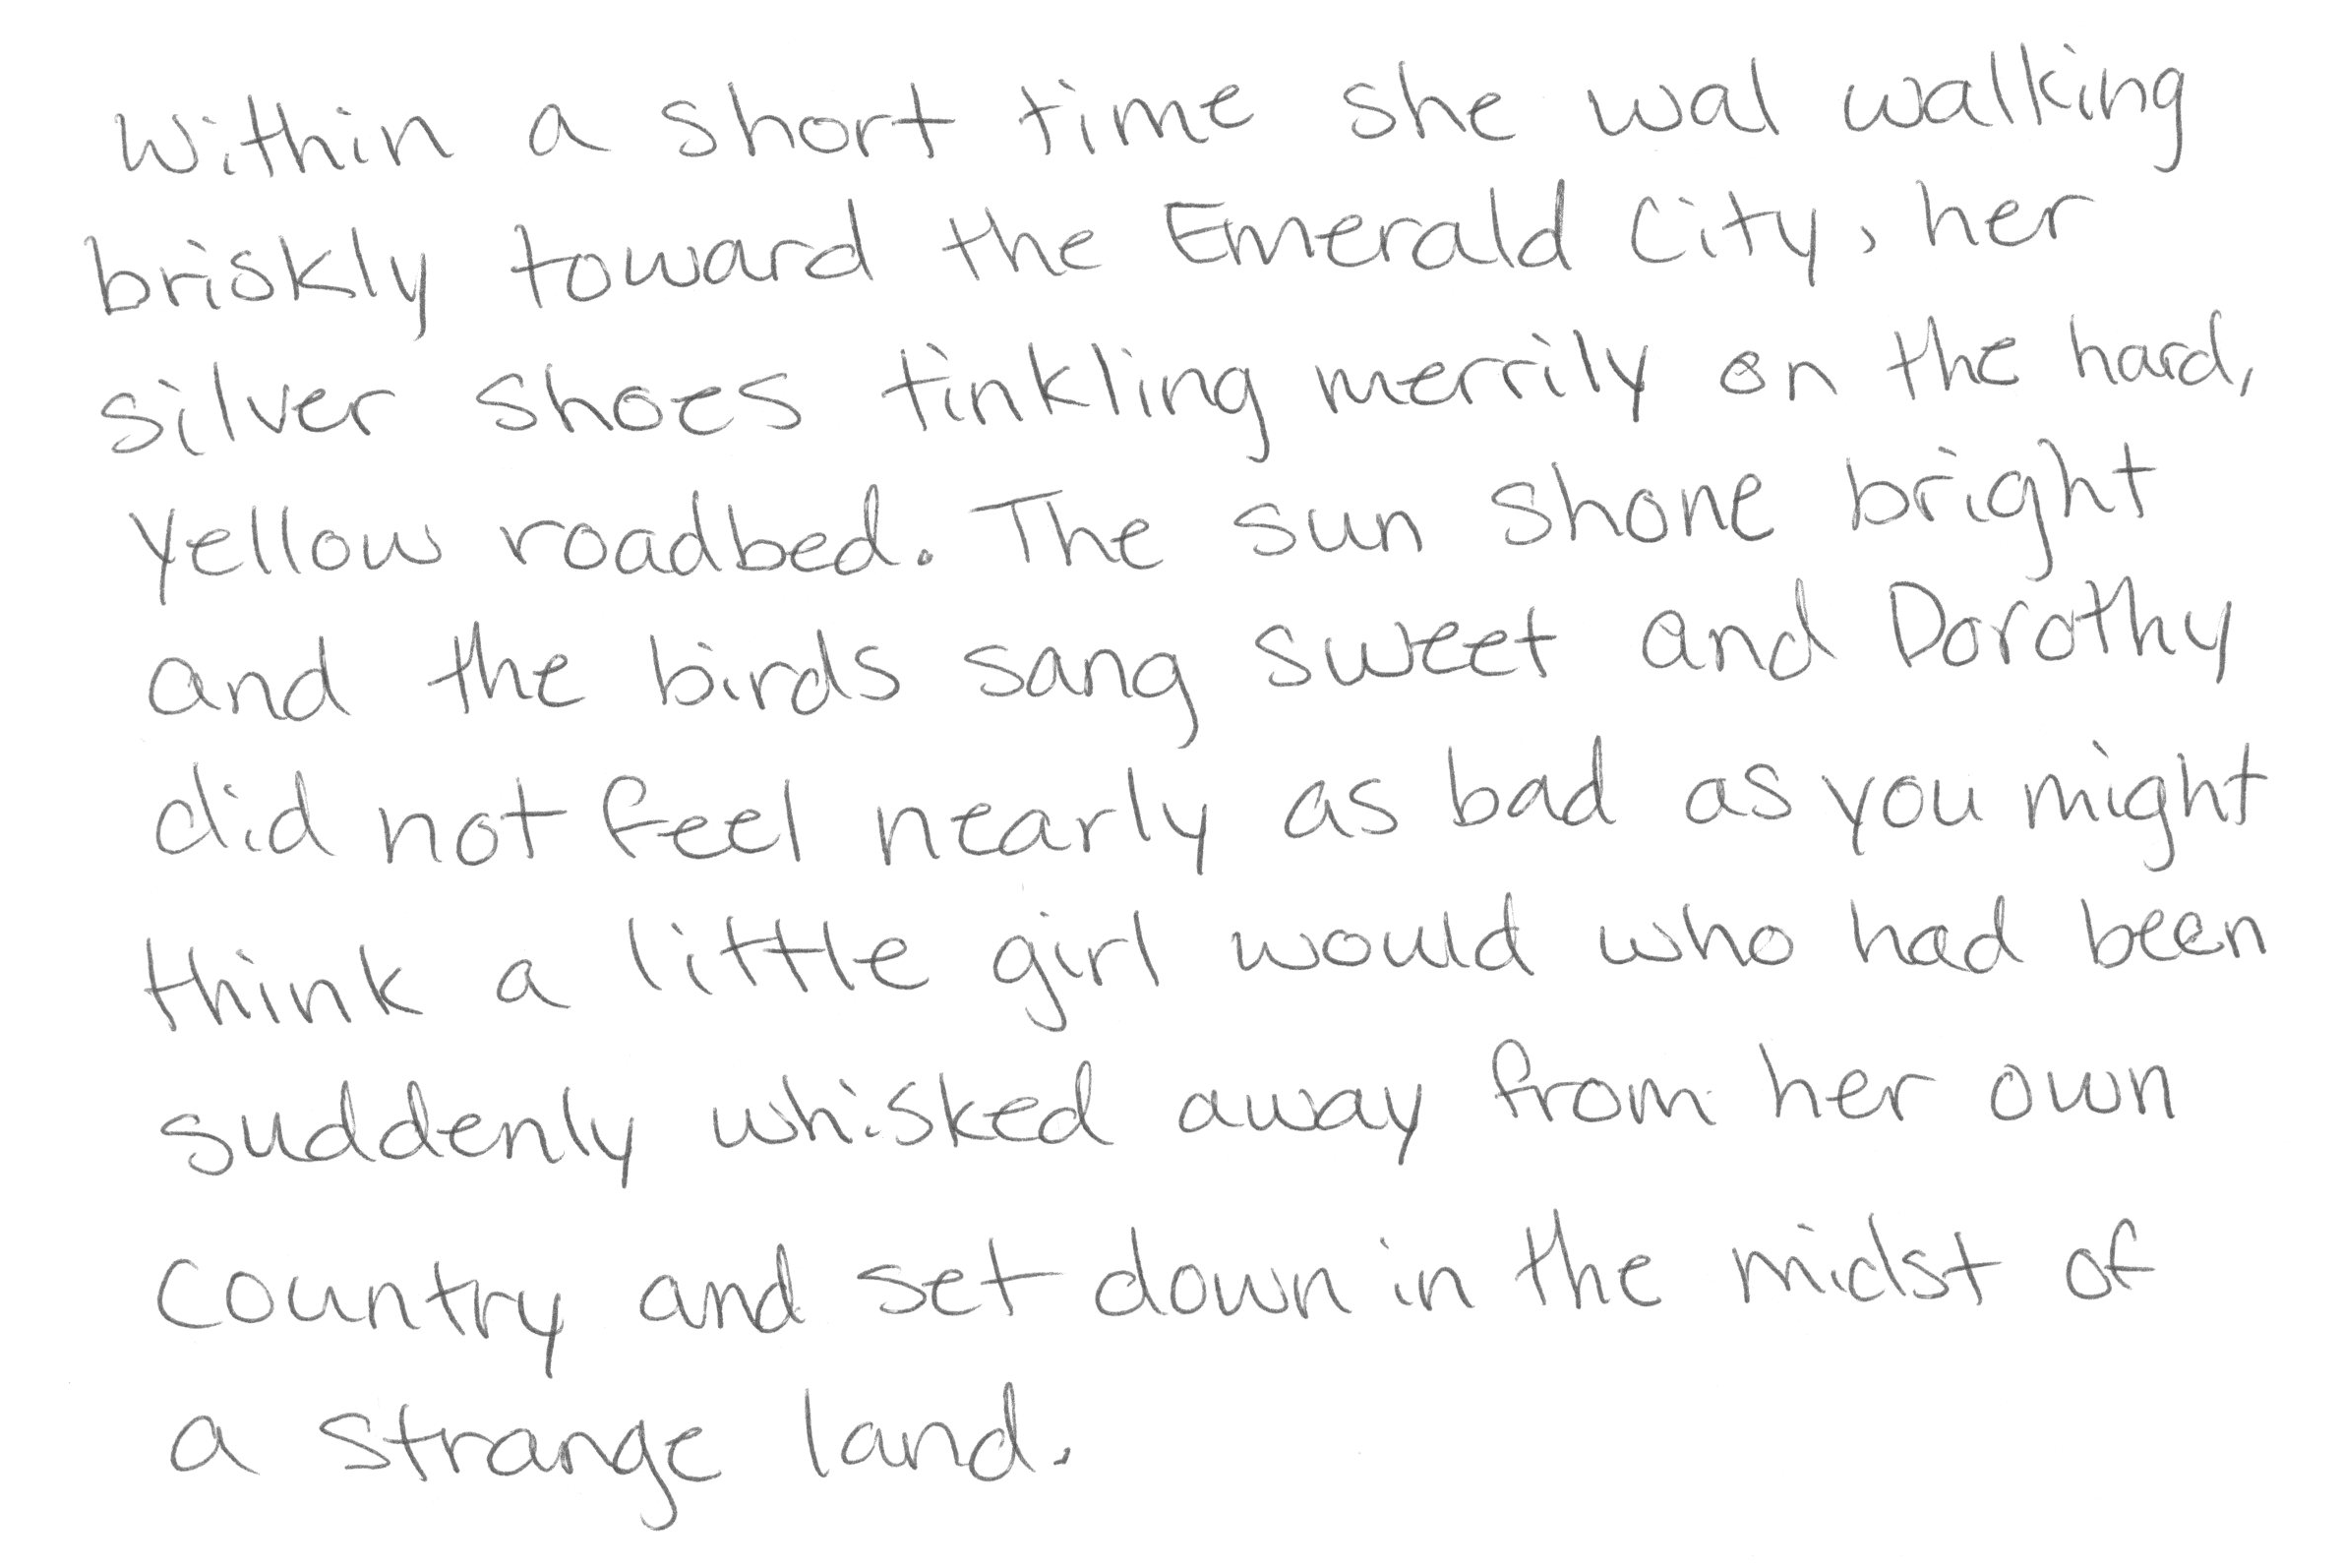 Within a short time she wal walking
briskly toward the Emerald City, her
silver shoes tinkling merrily on the hard,
yellow roadbed. The sun shone bright
and the birds sang sweet and Dorothy
did not feel nearly as bad as you might
think a little girl would who had been
suddenly whisked away from her own
country and set down in the midst of
a strange land.